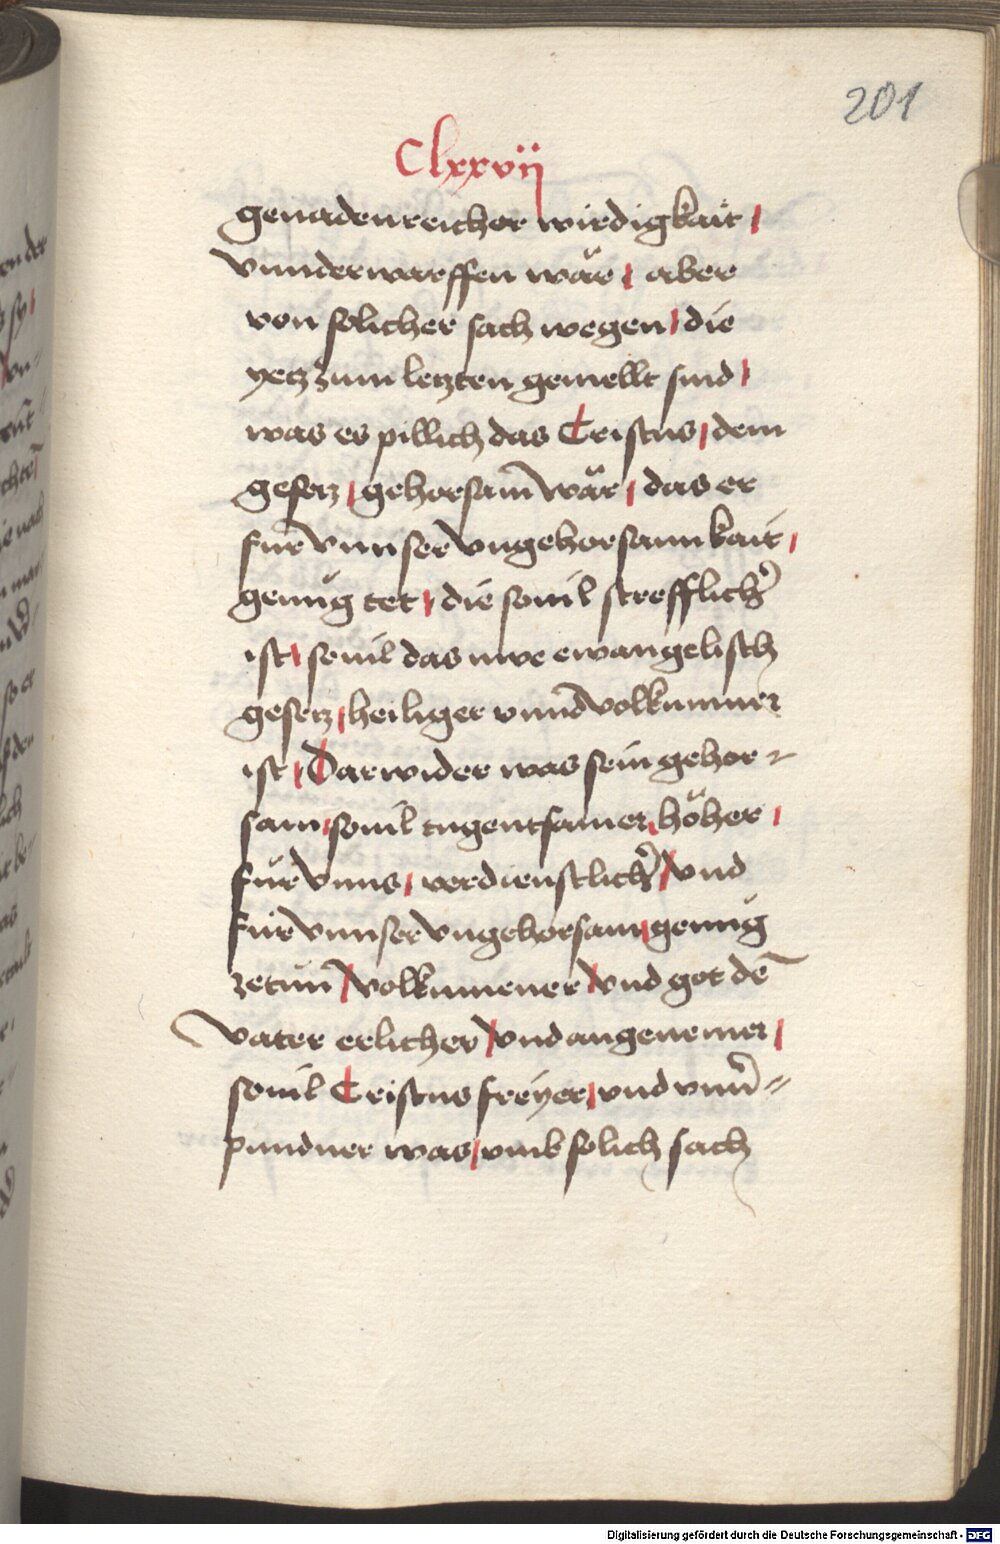 201
Clxxvij
genadenreicher wirdigkait /
vnnderwarffen wär / aber
von solicher sach wegen / die
yetz zum letzten gemellt sind /
was es pillich das Cristus / dem
gesetz / gehorsam̄ wär / das er
für vnnser vngehorsamkait /
genu̍g tet / die souil strefflich̓
ist / souil das new ewangelisch
gesetz / heiliger vnnd volkumner
ist / Darwider was sein gehor-
sam / souil tugentsamer / höher /
für vnns / verdienstlich̓ / vnd
für vnnser vngehorsam / genu̍g
zetun / volkumener / vnd got dē
vater erlicher / vnd angenemer /
souil Cristus freyer / vnd vnu̓=
pundner was / vmb solich sach
Digitalisierung gefördert durch die Deutsche Forschungsgemeinschaft - DFG